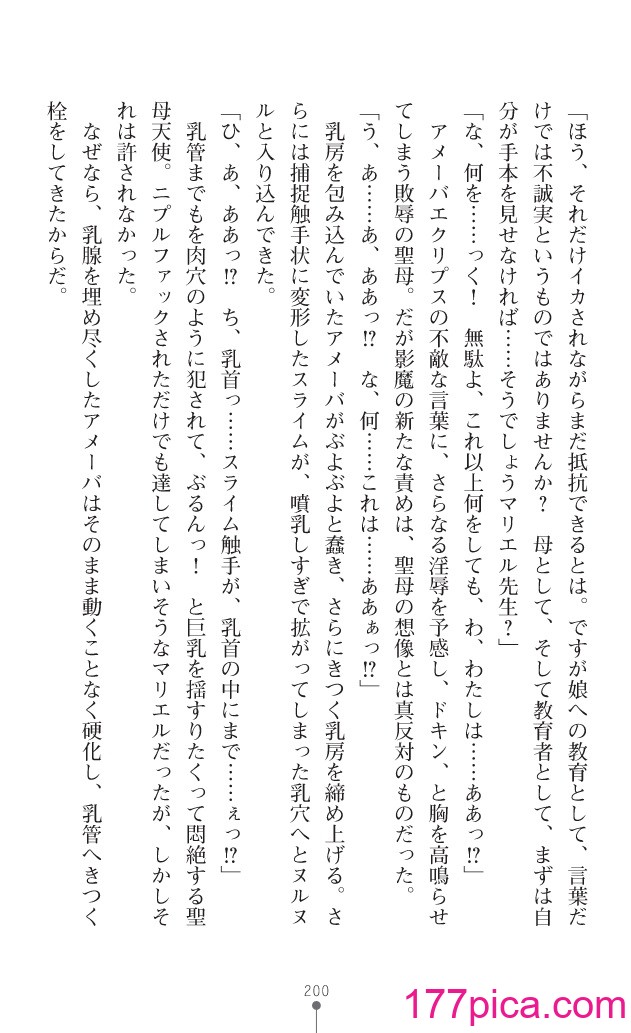 「ほう、それだけイカされながらまだ抵抗できるとは。ですが娘への教育として、言葉だ
けでは不誠実というものではありませんか？　母として、そして教育者として、まずは自
分が手本を見せなければ……そうでしょうマリエル先生？」
「な、何を……っく！　無駄よ、これ以上何をしても、わ、わたしは……ああっ!?」
　アメーバエクリプスの不敵な言葉に、さらなる淫辱を予感し、ドキン、と胸を高鳴らせ
てしまう敗辱の聖母。だが影魔の新たな責めは、聖母の想像とは真反対のものだった。
「う、あ……あ、ああっ!?　な、何……これは……ああぁっ!?」
　乳房を包み込んでいたアメーバがぶよぶよと蠢き、さらにきつく乳房を締め上げる。さ
らには捕捉触手状に変形したスライムが、噴乳しすぎで拡がってしまった乳穴へとヌルヌ
ルと入り込んできた。
「ひ、あ、ああっ!?　ち、乳首っ……スライム触手が、乳首の中にまで……ぇっ!?」
　乳管までもを肉穴のように犯されて、ぶるんっ！　と巨乳を揺すりたくって悶絶する聖
母天使。ニプルファックされただけでも達してしまいそうなマリエルだったが、しかしそ
れは許されなかった。
　なぜなら、乳腺を埋め尽くしたアメーバはそのまま動くことなく硬化し、乳管へきつく
栓をしてきたからだ。
200
177pica.com